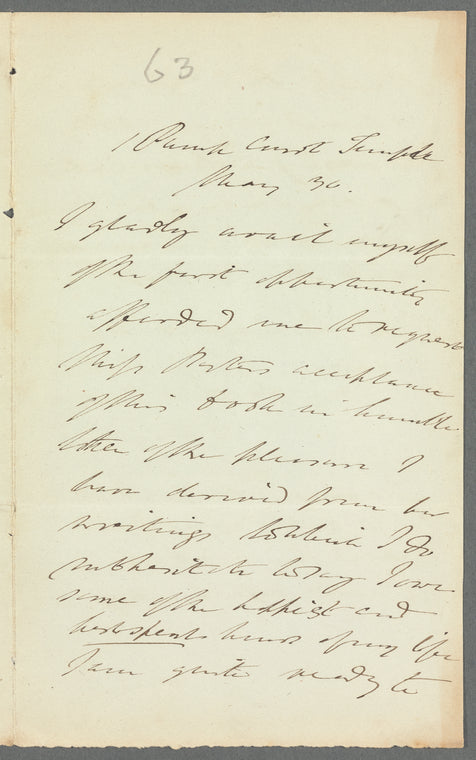 63
1 Pump Court Temple
May 30.
I gladly avail myself
of the first opportunity
afforded me to request
Miss Porter's acceptance
of this book in humble
token of the pleasure I
have derived from her
writings to which I do
not hesitate to say I owe
some of the happiest and
best spent hours of my life
I am quite ready to